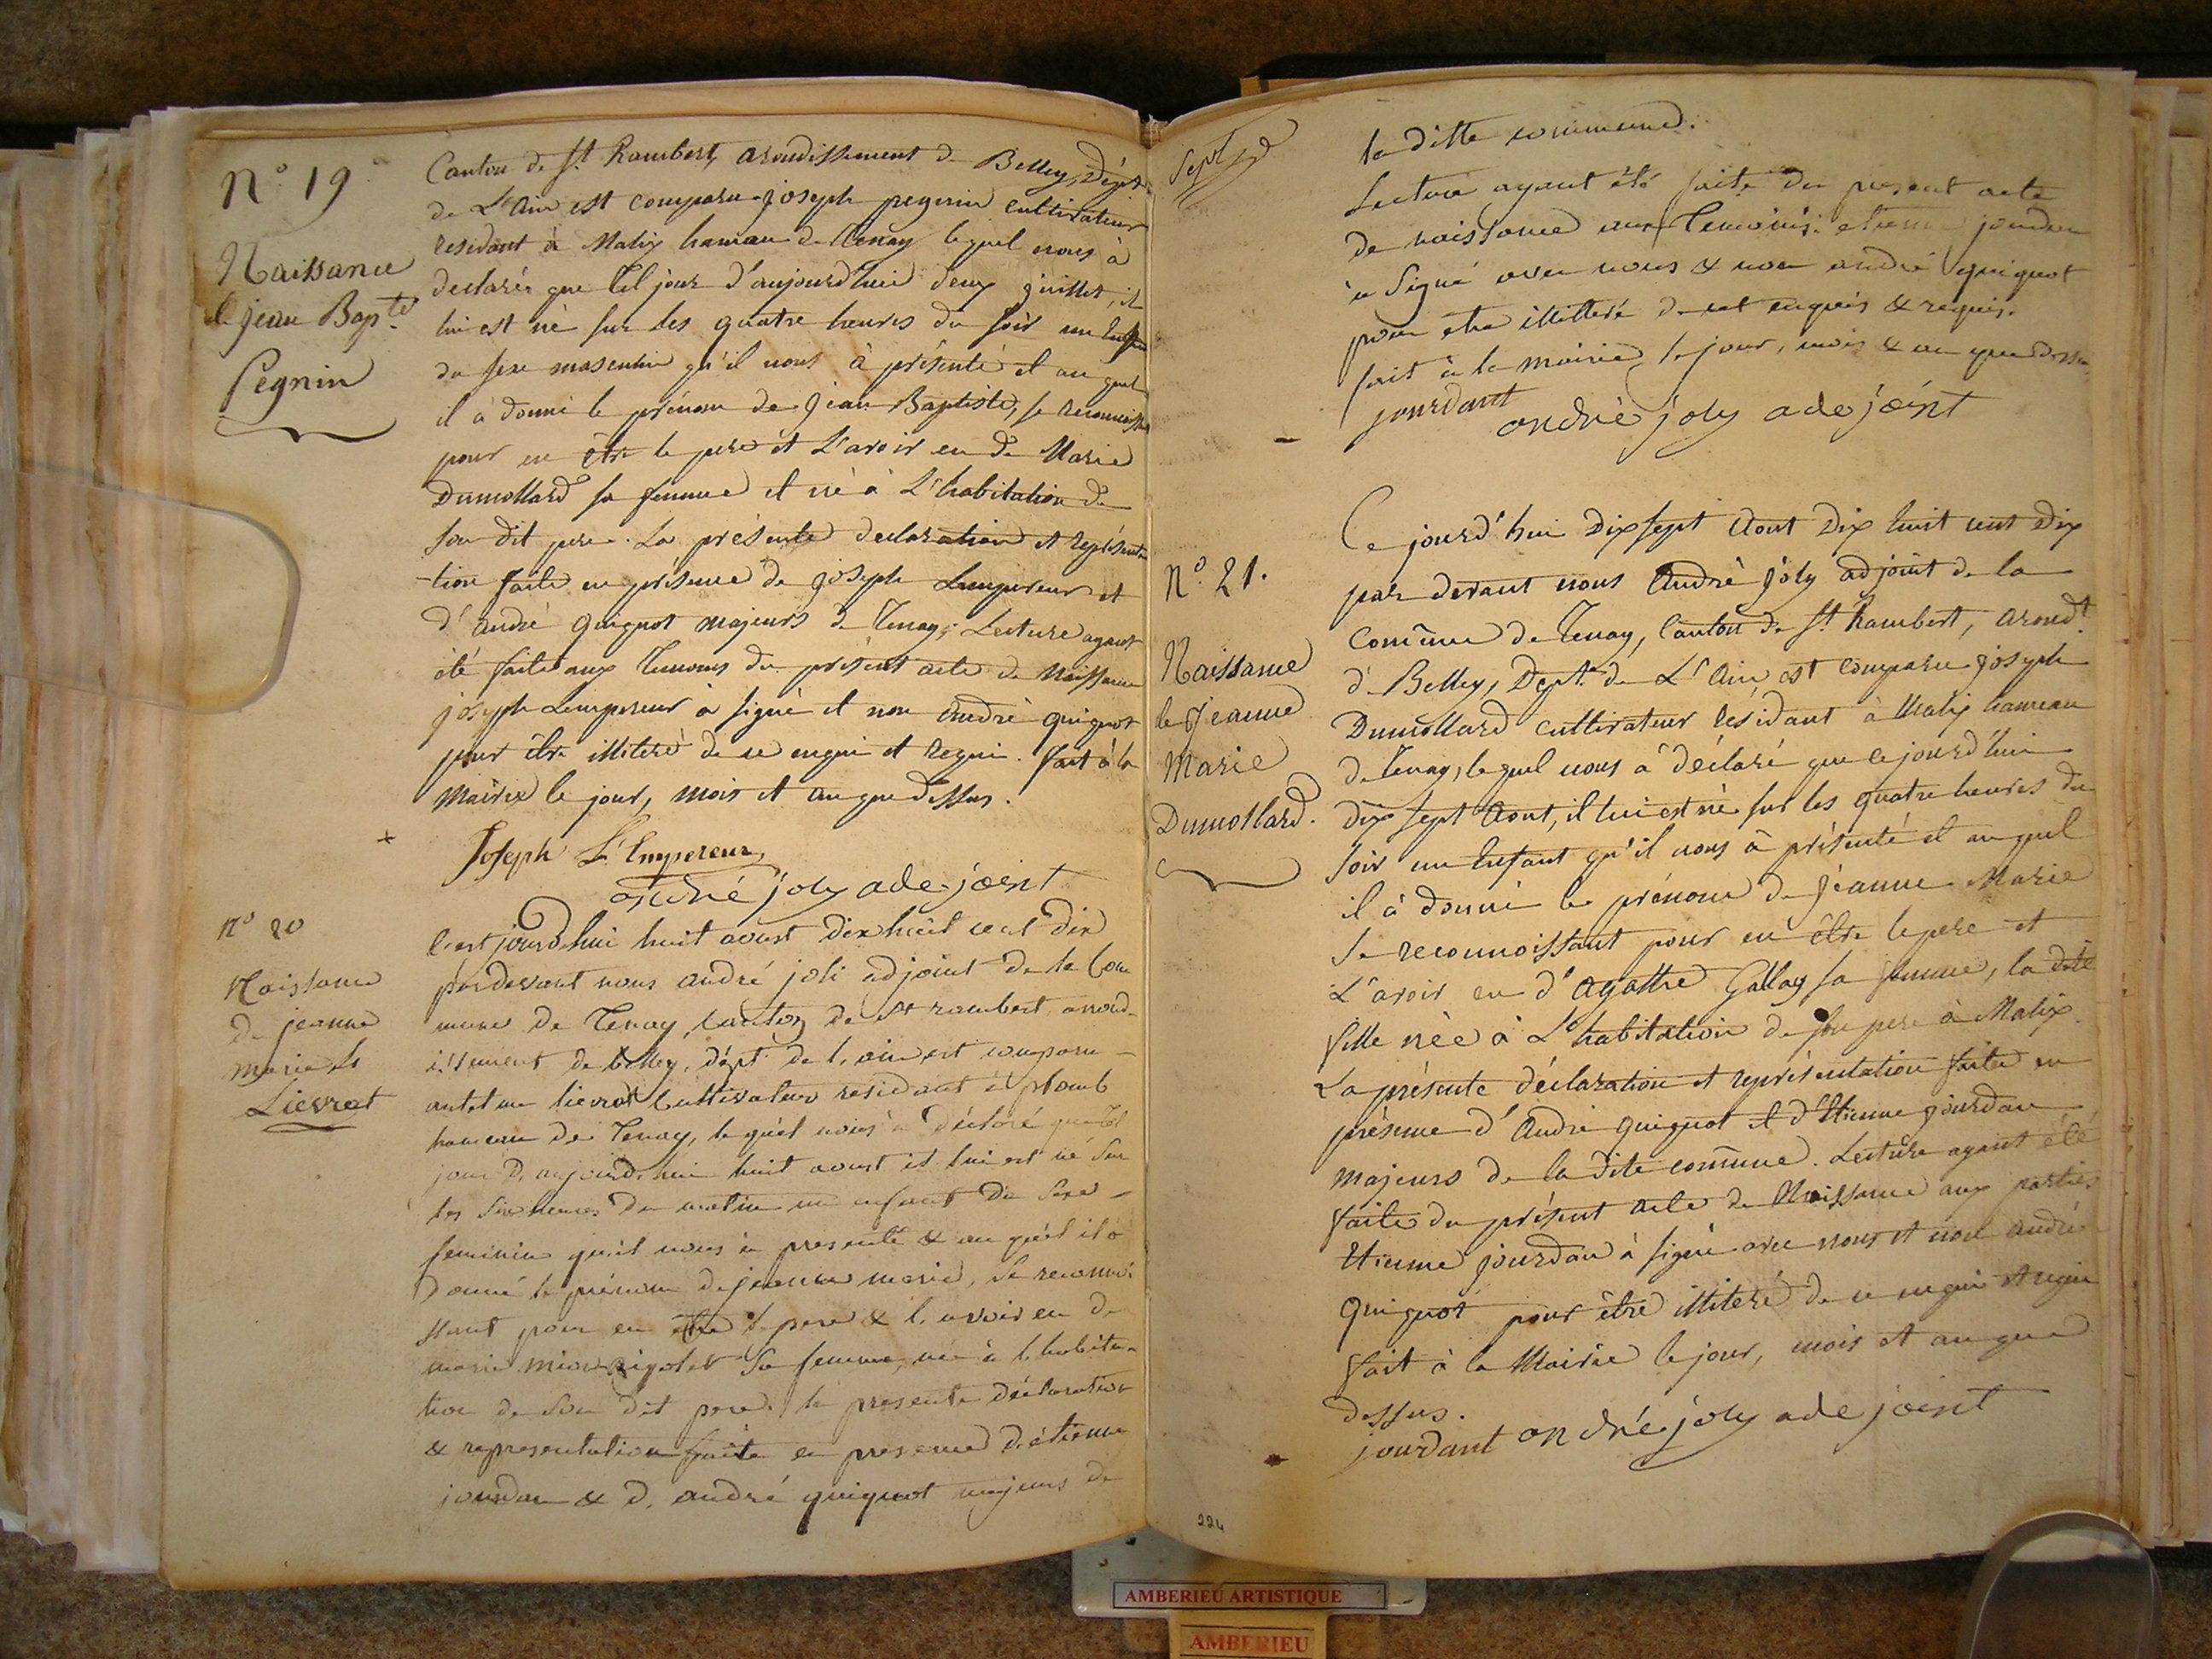 N.° 19
Naissance
de jean Bapte
Pegnin
Canton de St Rambert, arondissement de Belley, Dépt
de L'Ain est comparu joseph pegnin cultivateur
residant à Malix hameau de Tenay lequel nous à
declarée que Cel jour d'aujourd'hui deux juillet, il
lui est né sur les quatre heures du soir un Enfant
du sexe masculin qu'il nous à présenté et au quel
il à donné le prénom de jean Baptiste, se reconnoissant
pour en être le pere et L'avoir eu de Marie
Dumollard sa femme et né à L'habitation de
son dit pere. La présente declaration et représenta
-tion faite en présence de joseph Lempereur et
d'andré quignot majeurs de Tenay; Lecture ayant
été faite aux Temoins du présent acte de Naissance
joseph Lempereur à signé et non andré quignot
pour être illiteré de ce enquis et requi. fait à la
Mairie le jour, mois et an que dessus.
Joseph L'Empereur
andré joly adejoint
n° 20
Naissance
de jeanne
marie
Lievrot
Cest jourd'hui huit aoust dix huit cent dix
pardevant nous andré joli adjoint de la Com
mune de Tenay, canton de st rambert, arond
issement de belley, dépt de l'ain est comparu
lievrot Cultivateur residant à plomb
hameau de Tenay, lequel nous à déclaré que cel
jour d'aujourd'hui huit aoust il lui est né sur
les six heures du matin un enfant du sexe
feminin qu'il nous à presenté & au quel il à
donné le prénom de jeanne marie, se reconnoi
ssant pour en être le pere & l'avoir eu de
marie sa femme, née à l'habita-
tion de son dit pere. la presente déclaration
& representation faite en presence d'étienne
jourdan & d'andré quignot majeurs de
la ditte commune.
Lecture ayant été faite du present acte
de naissance aux Temoins: etienne jourdan
à signé avec nous & non andré quignot
pour etre illitteré de cet enquis & requis.
fait à la mairie, le jour, mois & an que dessus
jourdant
andrè joly adejoint
N.° 21.
Naissance
de Jeanne
Marie
Dumollard.
Ce jourd'hui Dix sept Aout Dix huit cent Dix
par devant nous André joly adjoint de la
Comune de Tenay, Canton de St Rambert, arondt
de Belley, Dept de L'Ain, est comparu joseph
Dumollard cultivateur residant à Malix hameau
de Tenay, lequel nous à déclaré que cejourd'hui
Dix sept Aout, il lui est né sur les quatre heures du
soir un Enfant qu'il nous à présenté et au quel
il à donné le prénom de jeanne Marie
se reconnoissant pour en être le pere et
L'avoir eu d'agathe Gallay sa femme, la dite
fille née à L'habitation de son pere à Malix.
La présente déclaration et représentation faite en
présence d'André quignot et d'Etienne jourdan
majeurs de la dite comune. Lecture ayant été
faite du présent acte de Naissance aux parties
Etienne jourdan à signé avec nous et non andré
quignot pour être illiteré de ce enquis et requi
fait à la Mairie le jour, mois et an que
dessus.
jourdant andrée joly adejoint
224
AMBERIEU ARTISTIQUE
AMBERIEU